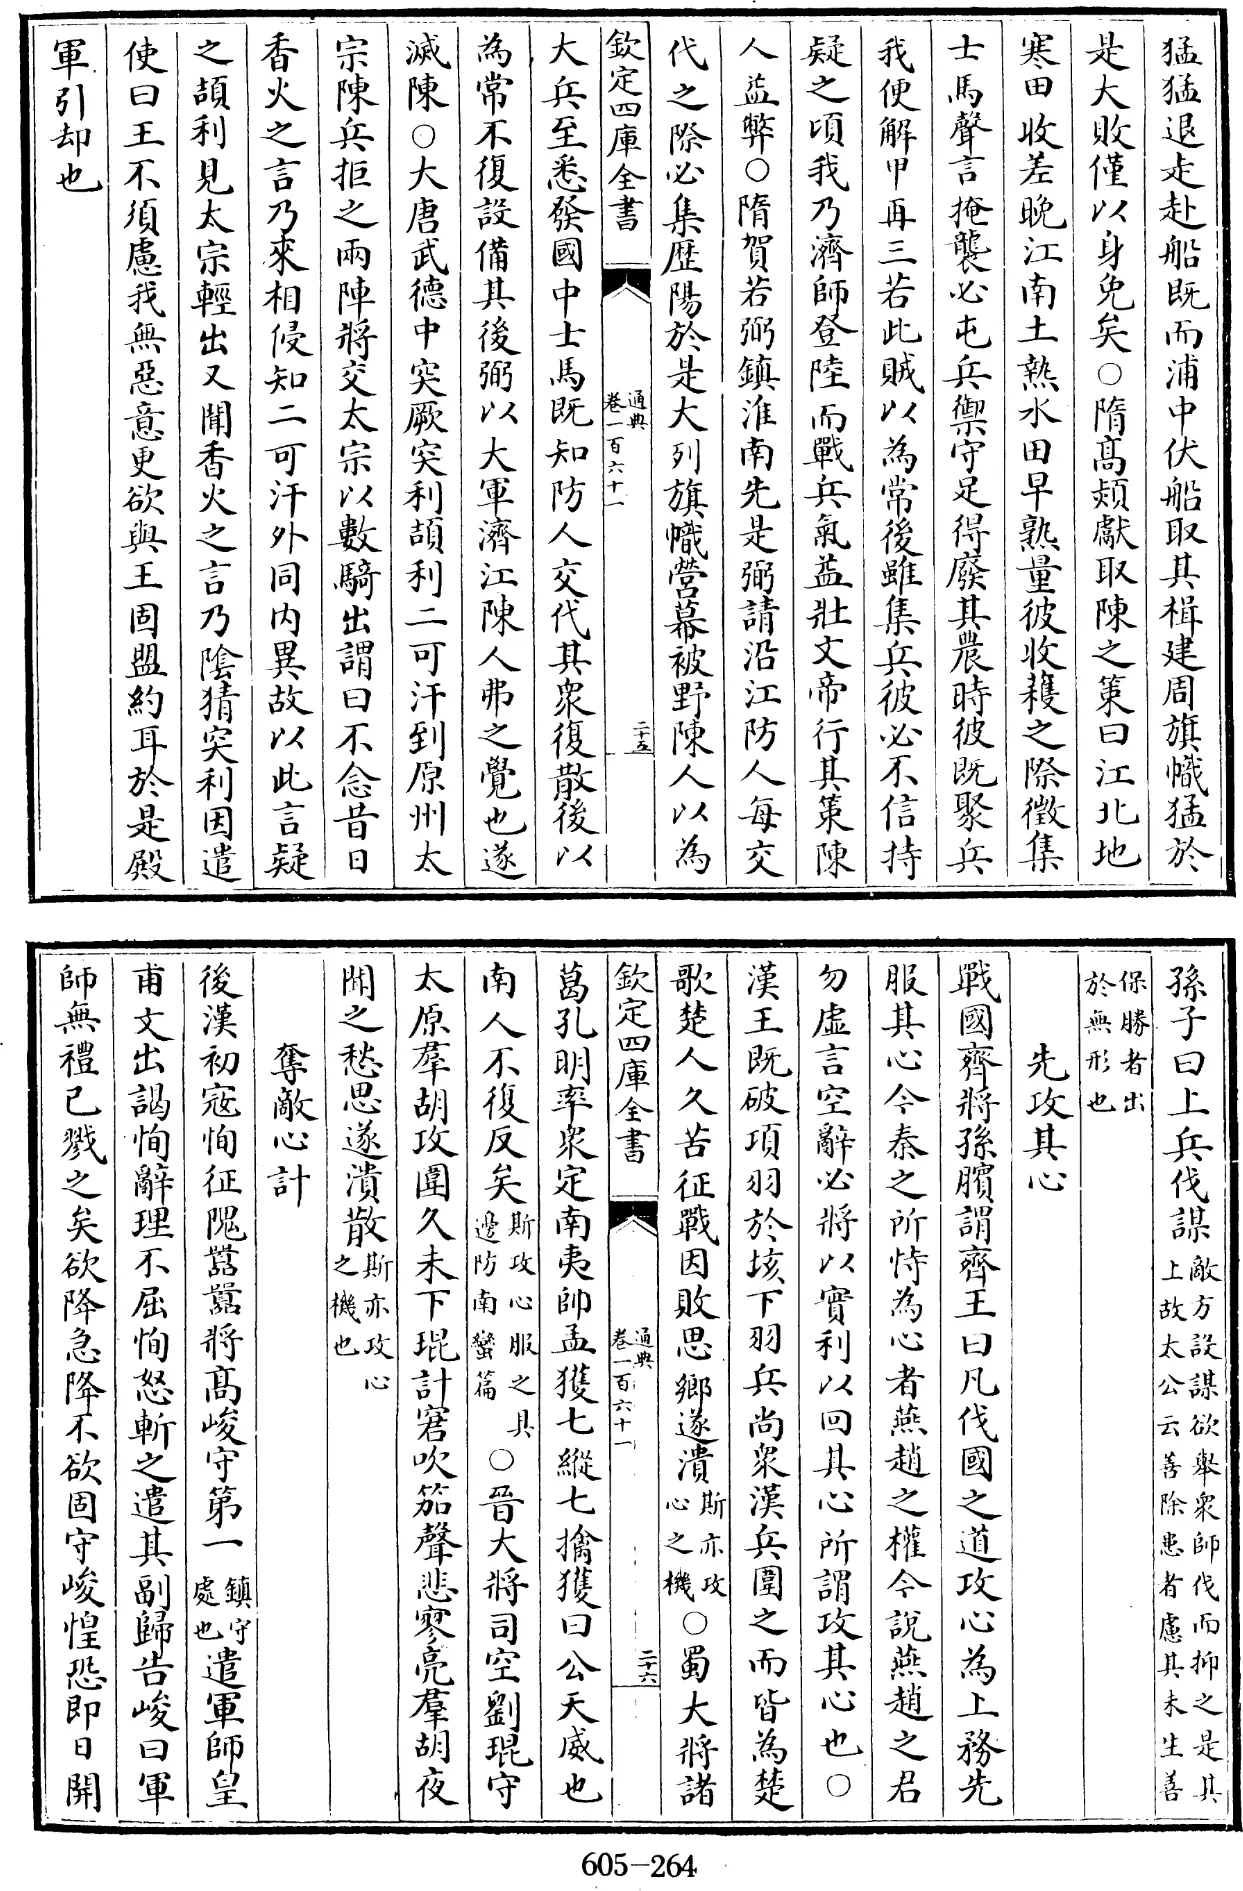 猛猛退走赴船既而浦中伏船取其楫建周旗幟猛於
是大敗僅以身免矣○隋髙熲獻取陳之策曰江北地
寒田收差晚江南土熱水田早熟量彼收穫之際徵集
士馬聲言掩襲必屯兵禦守足得廢其農時彼既聚兵
我便解甲再三若此賊以為常後雖集兵彼必不信持
疑之頃我乃濟師登陸而戰兵氣益壯文帝行其策陳
人益弊○隋賀若弼鎮淮南先是弼請沿江防人每交
代之際必集歴陽於是大列旗幟營幕被野陳人以為
欽定四庫全書
通典
卷一百六十一
二十五
大兵至悉發國中士馬既知防人交代其衆復散後以
為常不復設備其後弼以大軍濟江陳人弗之覺也遂
滅陳○大唐武德中突厥突利頡利二可汗到原州太
宗陳兵拒之兩陣將交太宗以數騎出謂曰不念昔日
香火之言乃來相侵知二可汗外同内異故以此言疑
之頡利見太宗輕出又聞香火之言乃陰猜突利因遣
使曰王不須慮我無惡意更欲與王固盟約耳於是殿
軍引却也
孫子曰上兵伐謀敵方設謀欲舉衆師伐而抑之是其
上故太公云善除患者慮其未生善
保勝者出
於無形也
先攻其心
戰國齊將孫臏謂齊王曰凡伐國之道攻心為上務先
服其心今秦之所恃為心者燕趙之權今說燕趙之君
勿虚言空辭必將以實利以回其心所謂攻其心也○
漢王既破項羽於垓下羽兵尚衆漢兵圍之而皆為楚
歌楚人久苦征戰因敗思鄉遂潰斯亦攻
心之機○蜀大將諸
欽定四庫全書
通典
卷一百六十一
二十六
葛孔明率衆定南夷帥孟獲七縱七擒獲曰公天威也
南人不復反矣斯攻心服之具
邊防南蠻篇○晉大將司空劉琨守
太原羣胡攻圍久未下琨計窘吹笳聲悲寥亮羣胡夜
聞之愁思遂潰散斯亦攻心
之機也
奪敵心計
後漢初宼恂征隗囂囂將髙峻守第一鎮守
處也遣軍師皇
甫文出謁恂辭理不屈恂怒斬之遣其副歸告峻曰軍
師無禮已戮之矣欲降急降不欲固守峻惶恐即日開
605-264